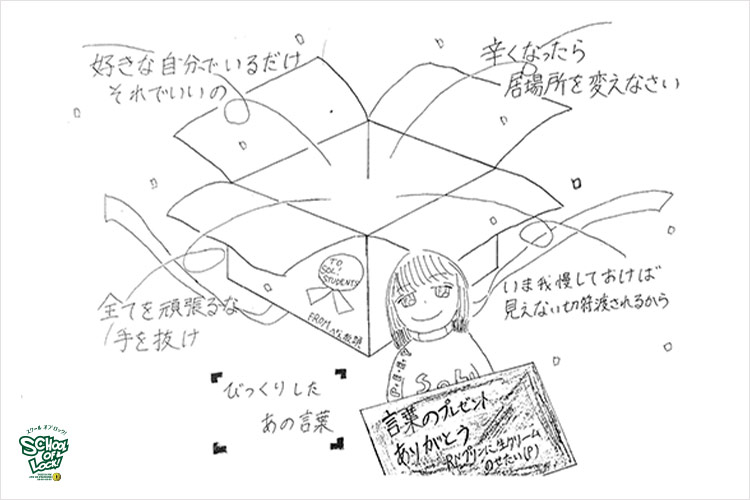 好きな自分でいるだけ
それでいいの
辛くなったら
居場所を変えなさい
全てを頑張るな
手を抜け
いま我慢しておけば
見えない切符渡されるから
TO
SOL!
STUDENTS
FROM
びっくりした
あの言葉
SoL!
言葉のプレゼント
ありがとう
RN プリンに生クリーム
のせたい(P)
スクール オブ ロック!
SCHOOL
OF
LOCK!